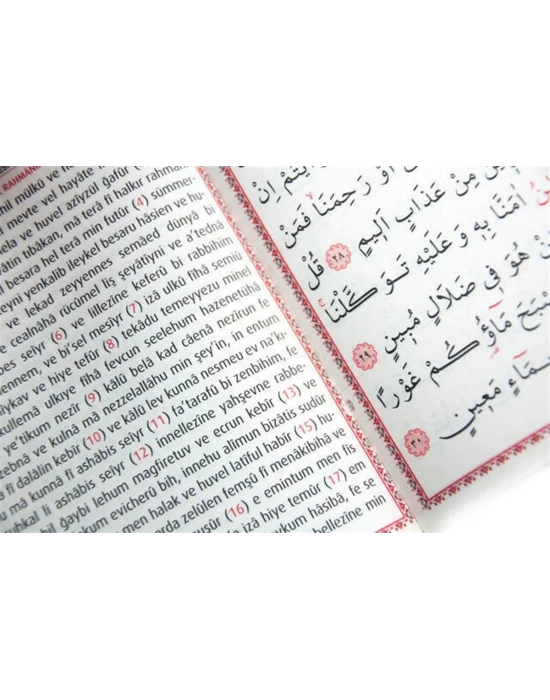 RAHMAN
mülkü ve
meyte vel hayâte
ve huvel azîyzül gafûr
tıbâkan, mâ terâ fî halkır rahmani
besara hel terâ min futûr (4) sümmer-
yenkalib ileykel besaru hâsien ve hu-
ve lekad zeyyennes semâed dünyâ bi
cealnâhâ rücûmel liş şeyâtîyni ve a'tednâ
seiyr (6) ve lillezîne keferû bi rabbihim
ve bi'sel mesîyr (7) izâ ulkû fîhâ semiû
ve hiye tefûr (8) tekâdu temeyyezu minel
ulkıye fîhâ fevcun seelehum hazenetühâ
e'tikum nezîr (9) kâlû belâ kad câenâ nezîrun fe
ve kulnâ mâ nezzelallâhu min şey'in, in entum
fî dalâlin kebîr (10) ve kâlû lev kunnâ nesmeu ev na'k-
mâ kunnâ fî ashâbis seiyr (11) fa'tarafû bi zenbihim, fe
li ashâbis seiyr (12) innellezîne yahşevne rabbe-
bil ğaybi lehum mağfiretuv ve ecrun kebîr (13) ve
evicherû bih, innehu alîmun bizâtis sudûr
men halak ve huvel latîful habîr (15) hu-
zelûlen femşû fî menâkibihâ ve
(16) e emintum men fis
izâ hiye temûr (17) em
hâsibâ, fe se
min
اِنْ
اَوْ رَحِمَنَا فَمَنْ
مِنْ عَذَابٍ اَلٖيمٍ ٢٨ قُلْ
اٰمَنَّا بِهٖ وَعَلَيْهِ تَوَكَّلْنَا
هُوَ فٖى ضَلَالٍ مُبٖينٍ ٢٩
مَٓاؤُكُمْ غَوْرًا
مَعٖينٍ ٣٠